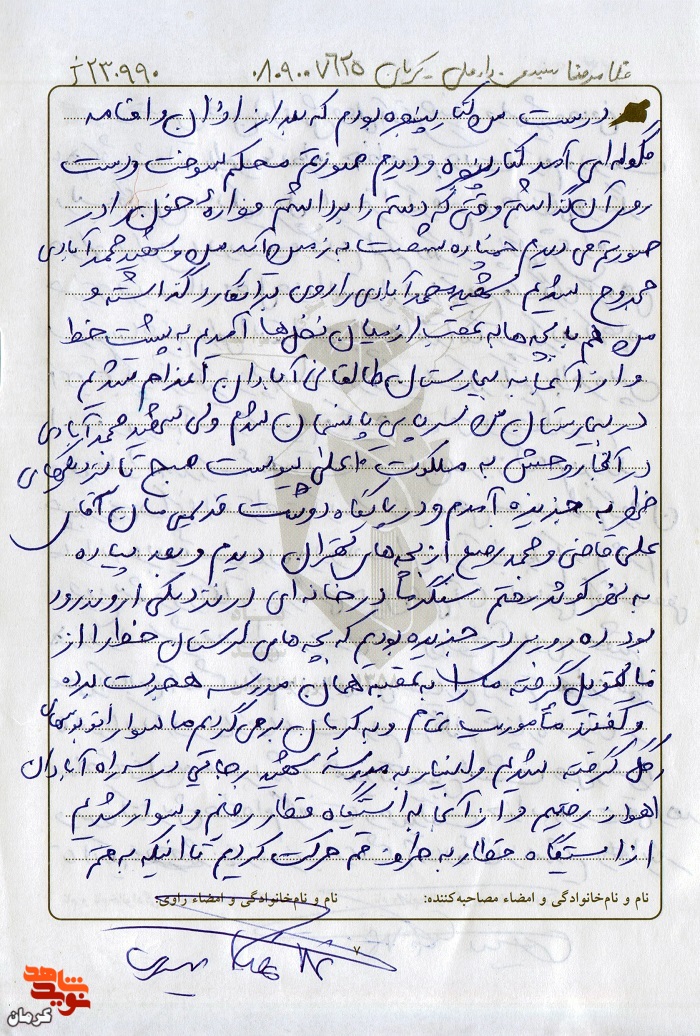 غلامرضا سعیدی راد ملی - کرمان ۰۸۰۹۰۰۷۶۲۵ ۲۳۰۹۹۰
درست من کنار پنجره بودم که بعد از اذان و اقامه
گلوله‌ای آمد کنار پنجره و دیدم صورتم محکم سوخت و دست
روی آن گذاشتم وقتی که دستم را برداشتم فوارهٔ خون را در
صورتم می دیدم خمپاره شصت به زمین آمد من و شهید محمدآبادی
مجروح شدیم شهید محمدآبادی را روی برانکارد گذاشته و
من هم با بچه ها به عقب از میان نخل‌ها آمدیم به پشت خط
و از آنجا به بیمارستان طالقانی آبادان اعزام شدیم
در بیمارستان من سرپایی پانسمان شدم ولی شهید محمدآبادی
در آنجا روحش به ملکوت اعلی پیوست صبح تا نزدیکهای
ظهر به جزیره آمدم و در پاسگاه دوست قدیمی مان آقای
علی قاضی و محمد رفیع از بچه‌های تهران دیدم و بعد پیاده
به نهر کوثر رفتم سنگر ما در خانه‌ای در نزدیکی اروندرود
بود ده روزی در جزیره بودم که بچه‌های لرستان خط را از
ما تحویل گرفته ما را به عقبه همان مدرسه هجرت برده
و گفتند مأموریت تمام و به کرمان برمی گردیم ما سوار اتوبوسهای
گل گرفته شدیم و اینبار به مدرسهٔ شهید رجایی در سه راه آبادان
اهواز رفتیم و از آنجا به ایستگاه قطار رفتیم و سوار شدیم
از ایستگاه قطار به طرف قم حرکت کردیم تا اینکه به قم
نام و نام‌خانوادگی و امضاء مصاحبه‌کننده:
نام و نام‌خانوادگی و امضاء راوی:
۷
نوید شاهد
کرمان